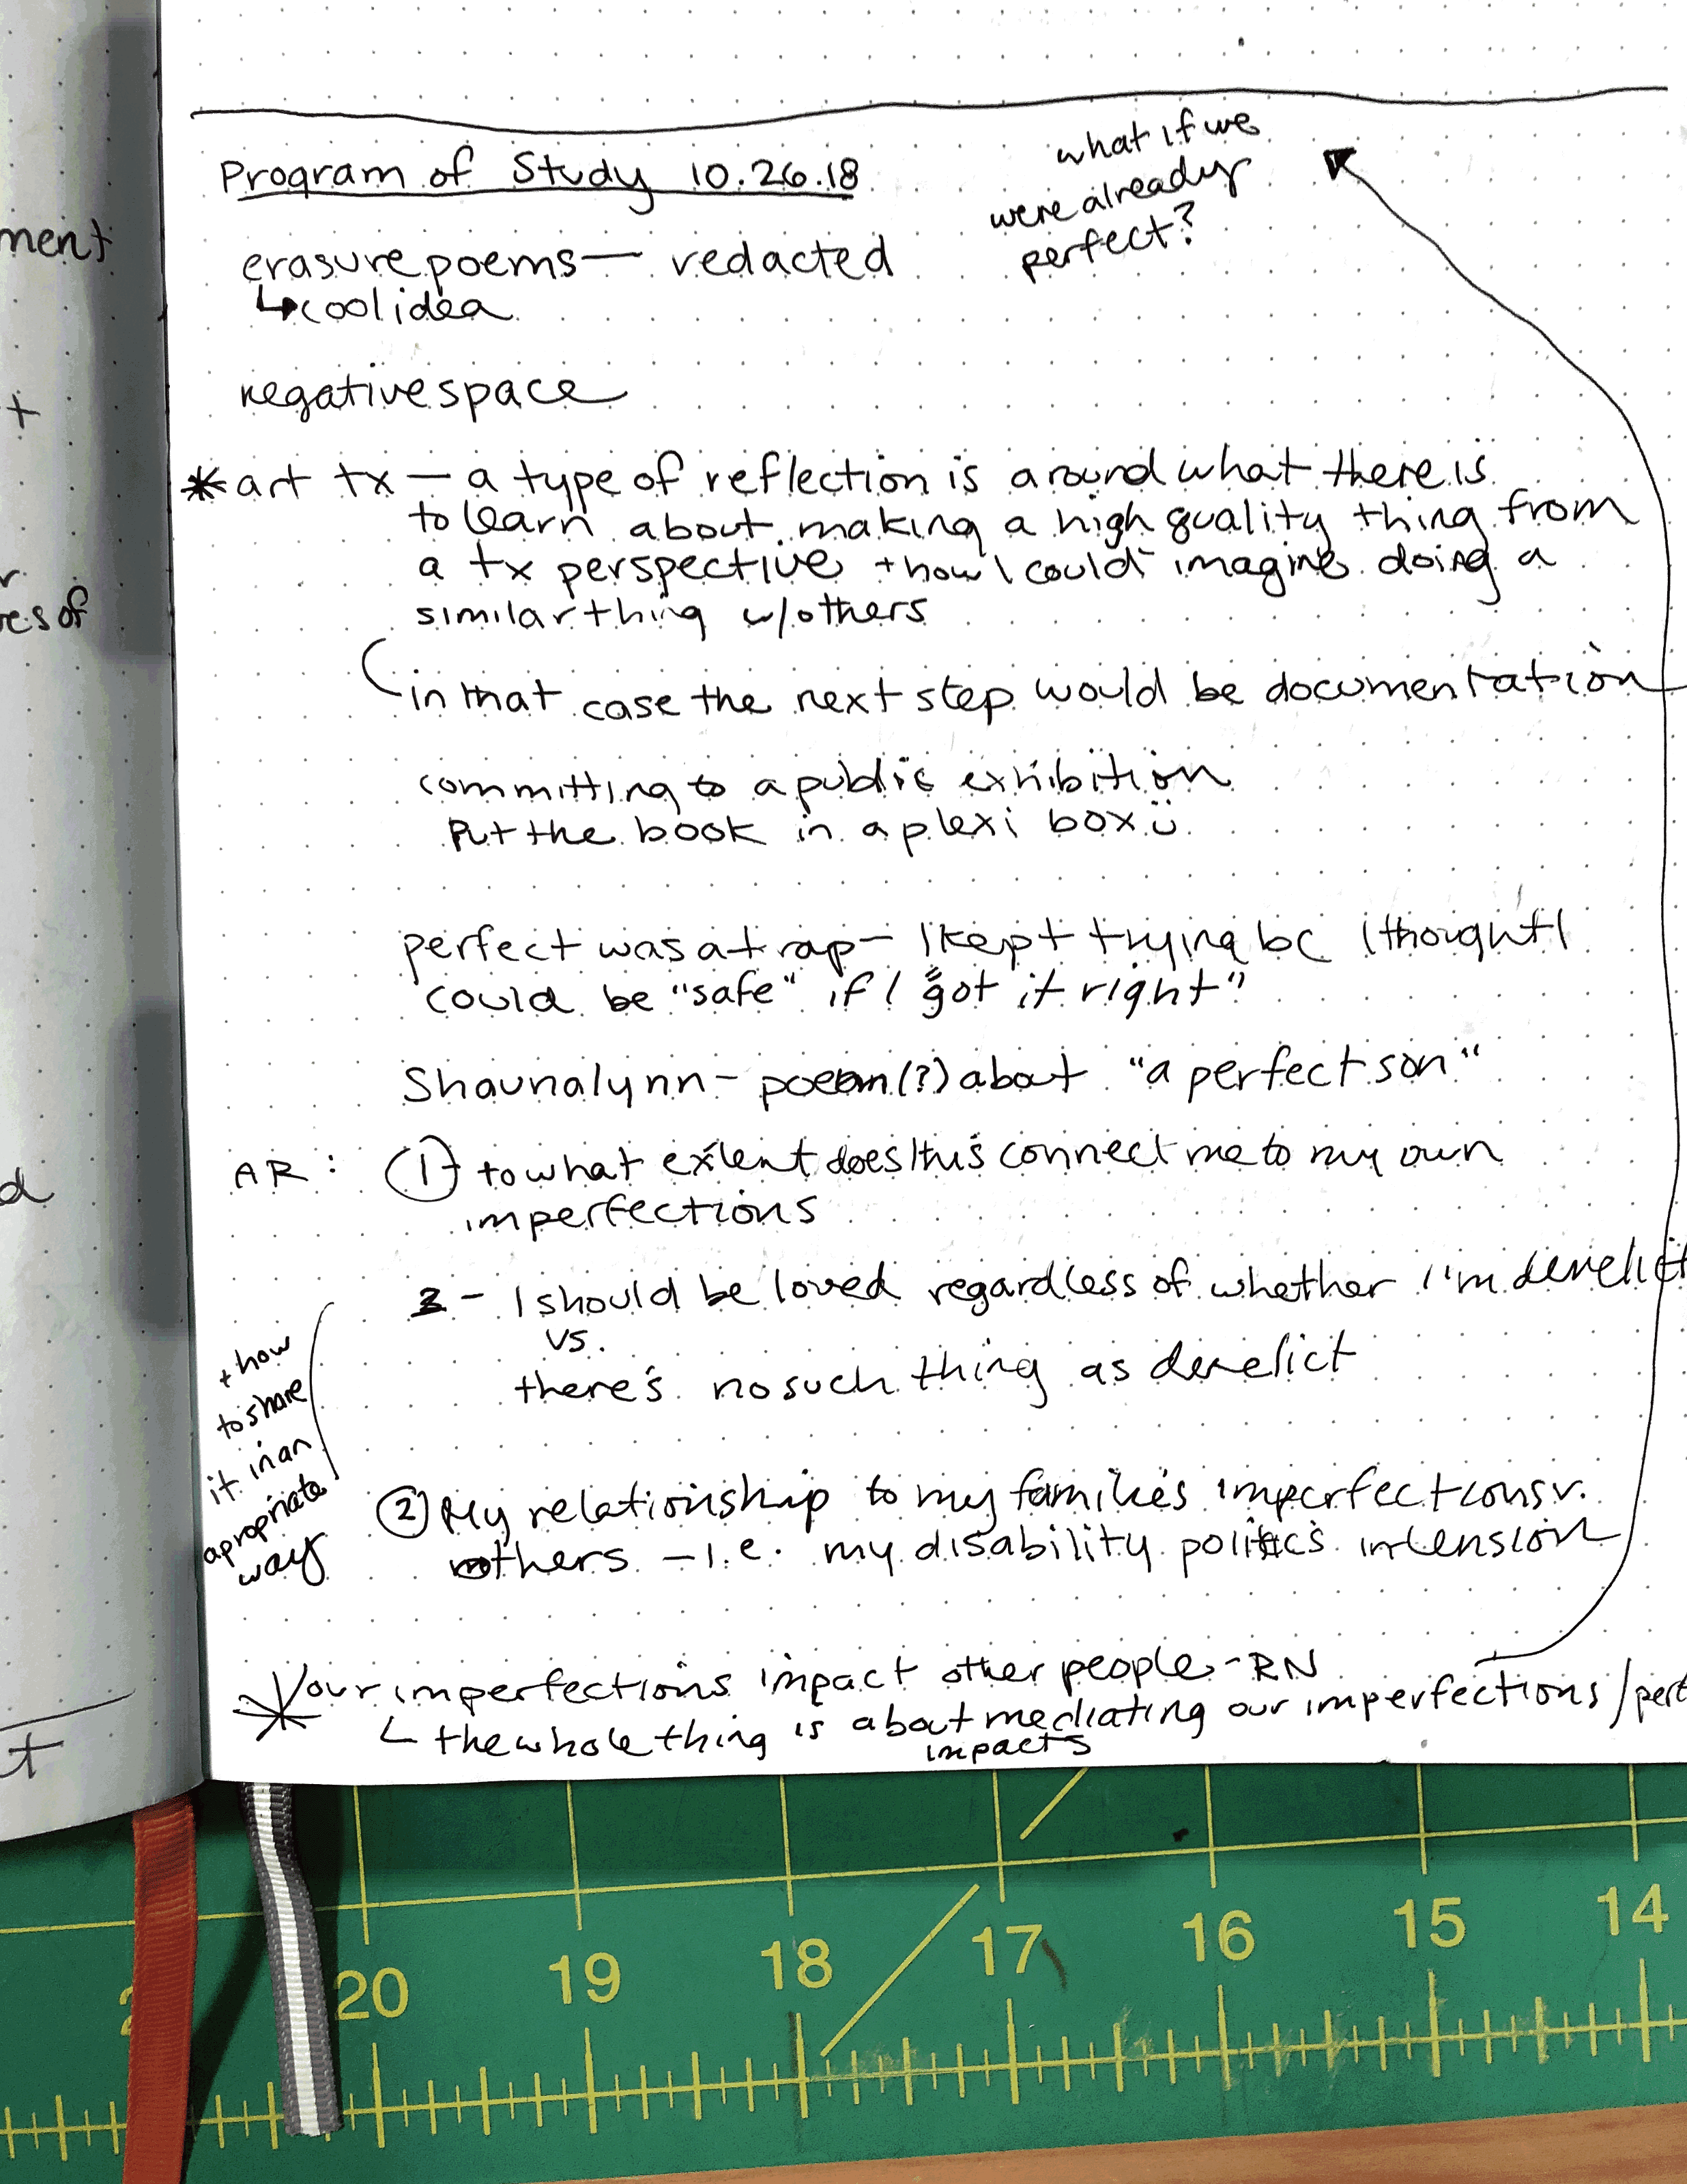 Program of Study 10.26.18
what if we
were already
perfect?
erasure poems — redacted
↳ cool idea
negative space
* art tx — a type of reflection is around what there is
to learn about making a high quality thing from
a tx perspective + how I could imagine doing a
similar thing w/others
in that case the next step would be documentation
committing to a public exhibition
put the book in a plexi box ü
perfect was a trap - I kept trying bc I thought I
could be "safe" if I "got it right"
Shaunalynn - poem (?) about "a perfect son"
AR: ① to what extent does this connect me to my own
imperfections
2 - I should be loved regardless of whether I'm derelict
vs.
there's no such thing as derelict
+ how
to share
it in an
apropriate
way
② My relationship to my families imperfections v.
others - i.e. my disability politics in tension
* our imperfections impact other people - RN
↳ the whole thing is about mediating our imperfections / perf
impacts
ment
+
r
es of
d
t
20 19 18 17 16 15 14